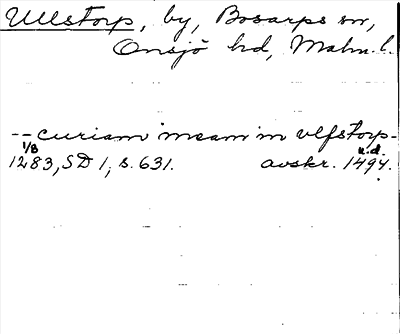 Ullstorp, by, Bosarps sn,
Onsjö hd, Malm. l.
-- curiam meam in vlfstorp -
1/8 u.d.
1283, SD 1, s. 631. avskr. 1494.